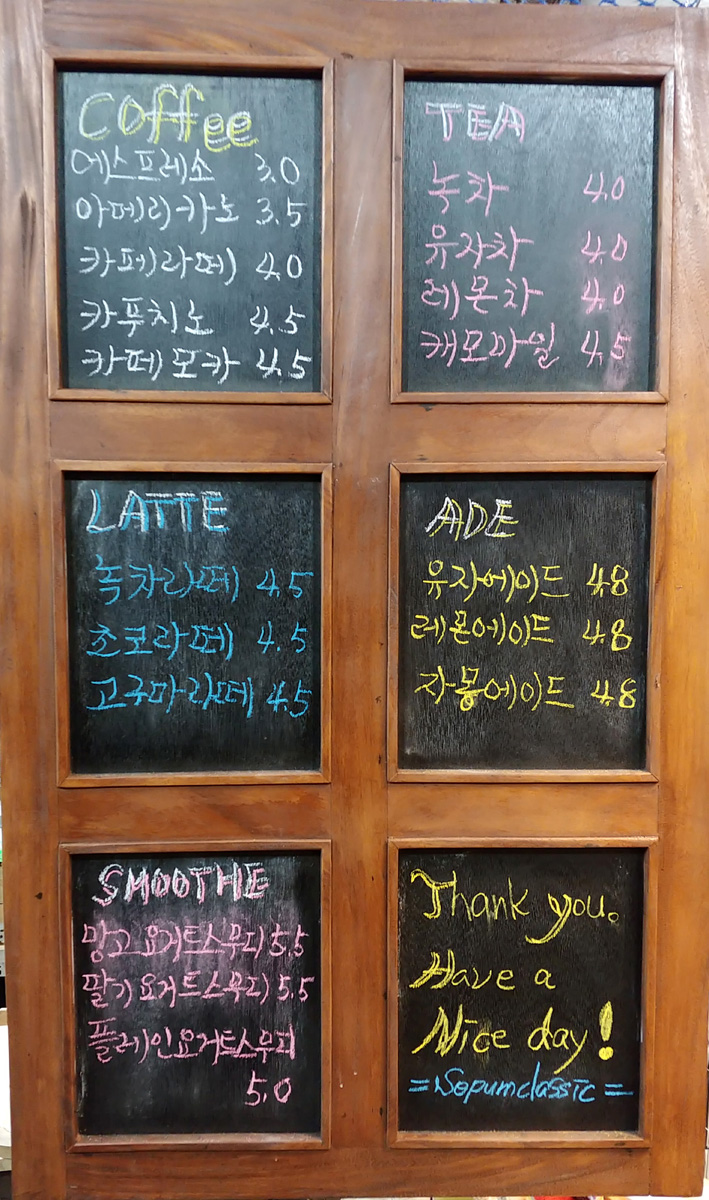 Coffee
에스프레소 3.0
아메리카노 3.5
카페라떼 4.0
카푸치노 4.5
카페모카 4.5
TEA
녹차 4.0
유자차 4.0
레몬차 4.0
캐모마일 4.5
LATTE
녹차라떼 4.5
초코라떼 4.5
고구마라떼 4.5
ADE
유자에이드 4.8
레몬에이드 4.8
자몽에이드 4.8
SMOOTHE
망고요거트스무디 5.5
딸기요거트스무디 5.5
플레인요거트스무디
5.0
Thank you.
Have a
Nice day!
=Sopumclassic=